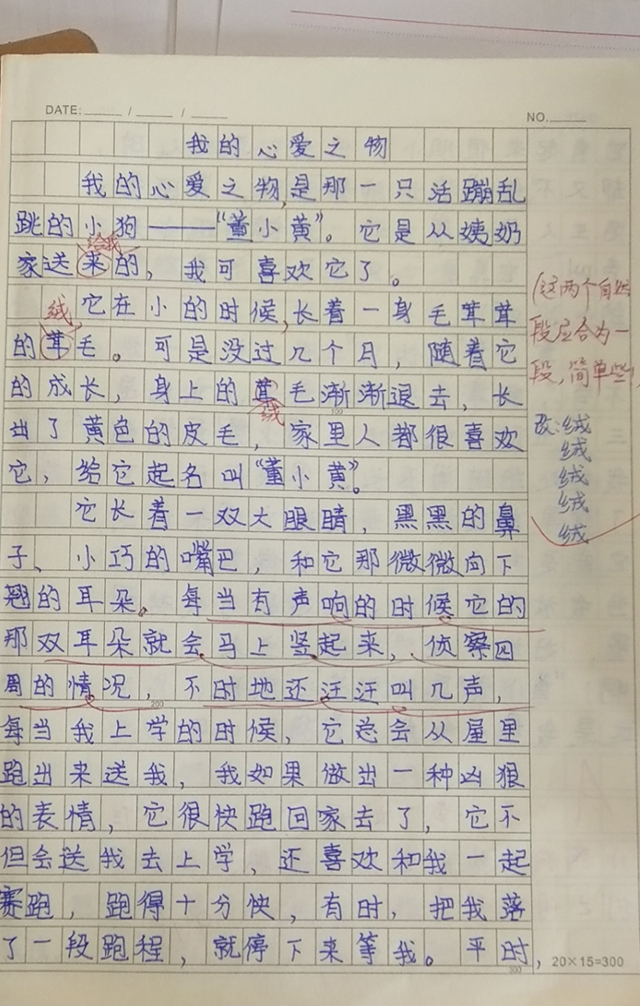 DATE: / /
NO.
我的心爱之物
我的心爱之物,是那一只活蹦乱
跳的小狗——“董小黄”。它是从姨奶
给我
家送来的，我可喜欢它了。
绒
它在小的时候,长着一身毛茸茸
的茸毛。可是没过几个月，随着它
的成长，身上的茸毛渐渐退去，长
绒
出了黄色的皮毛，家里人都很喜欢
它，给它起名叫“董小黄”。
它长着一双大眼睛，黑黑的鼻
子、小巧的嘴巴，和它那微微向下
翘的耳朵。每当有声响的时候它的
那双耳朵就会马上竖起来，侦察四
周的情况，不时地还汪汪叫几声，
200
每当我上学的时候，它总会从屋里
跑出来送我，我如果做出一种凶狠
的表情，它很快跑回家去了，它不
但会送我去上学，还喜欢和我一起
赛跑，跑得十分快，有时，把我落
了一段跑程，就停下来等我。平时，
300
20×15=300
(这两个自然
段应合为一
段,简单些
改:绒
绒
绒
绒
绒